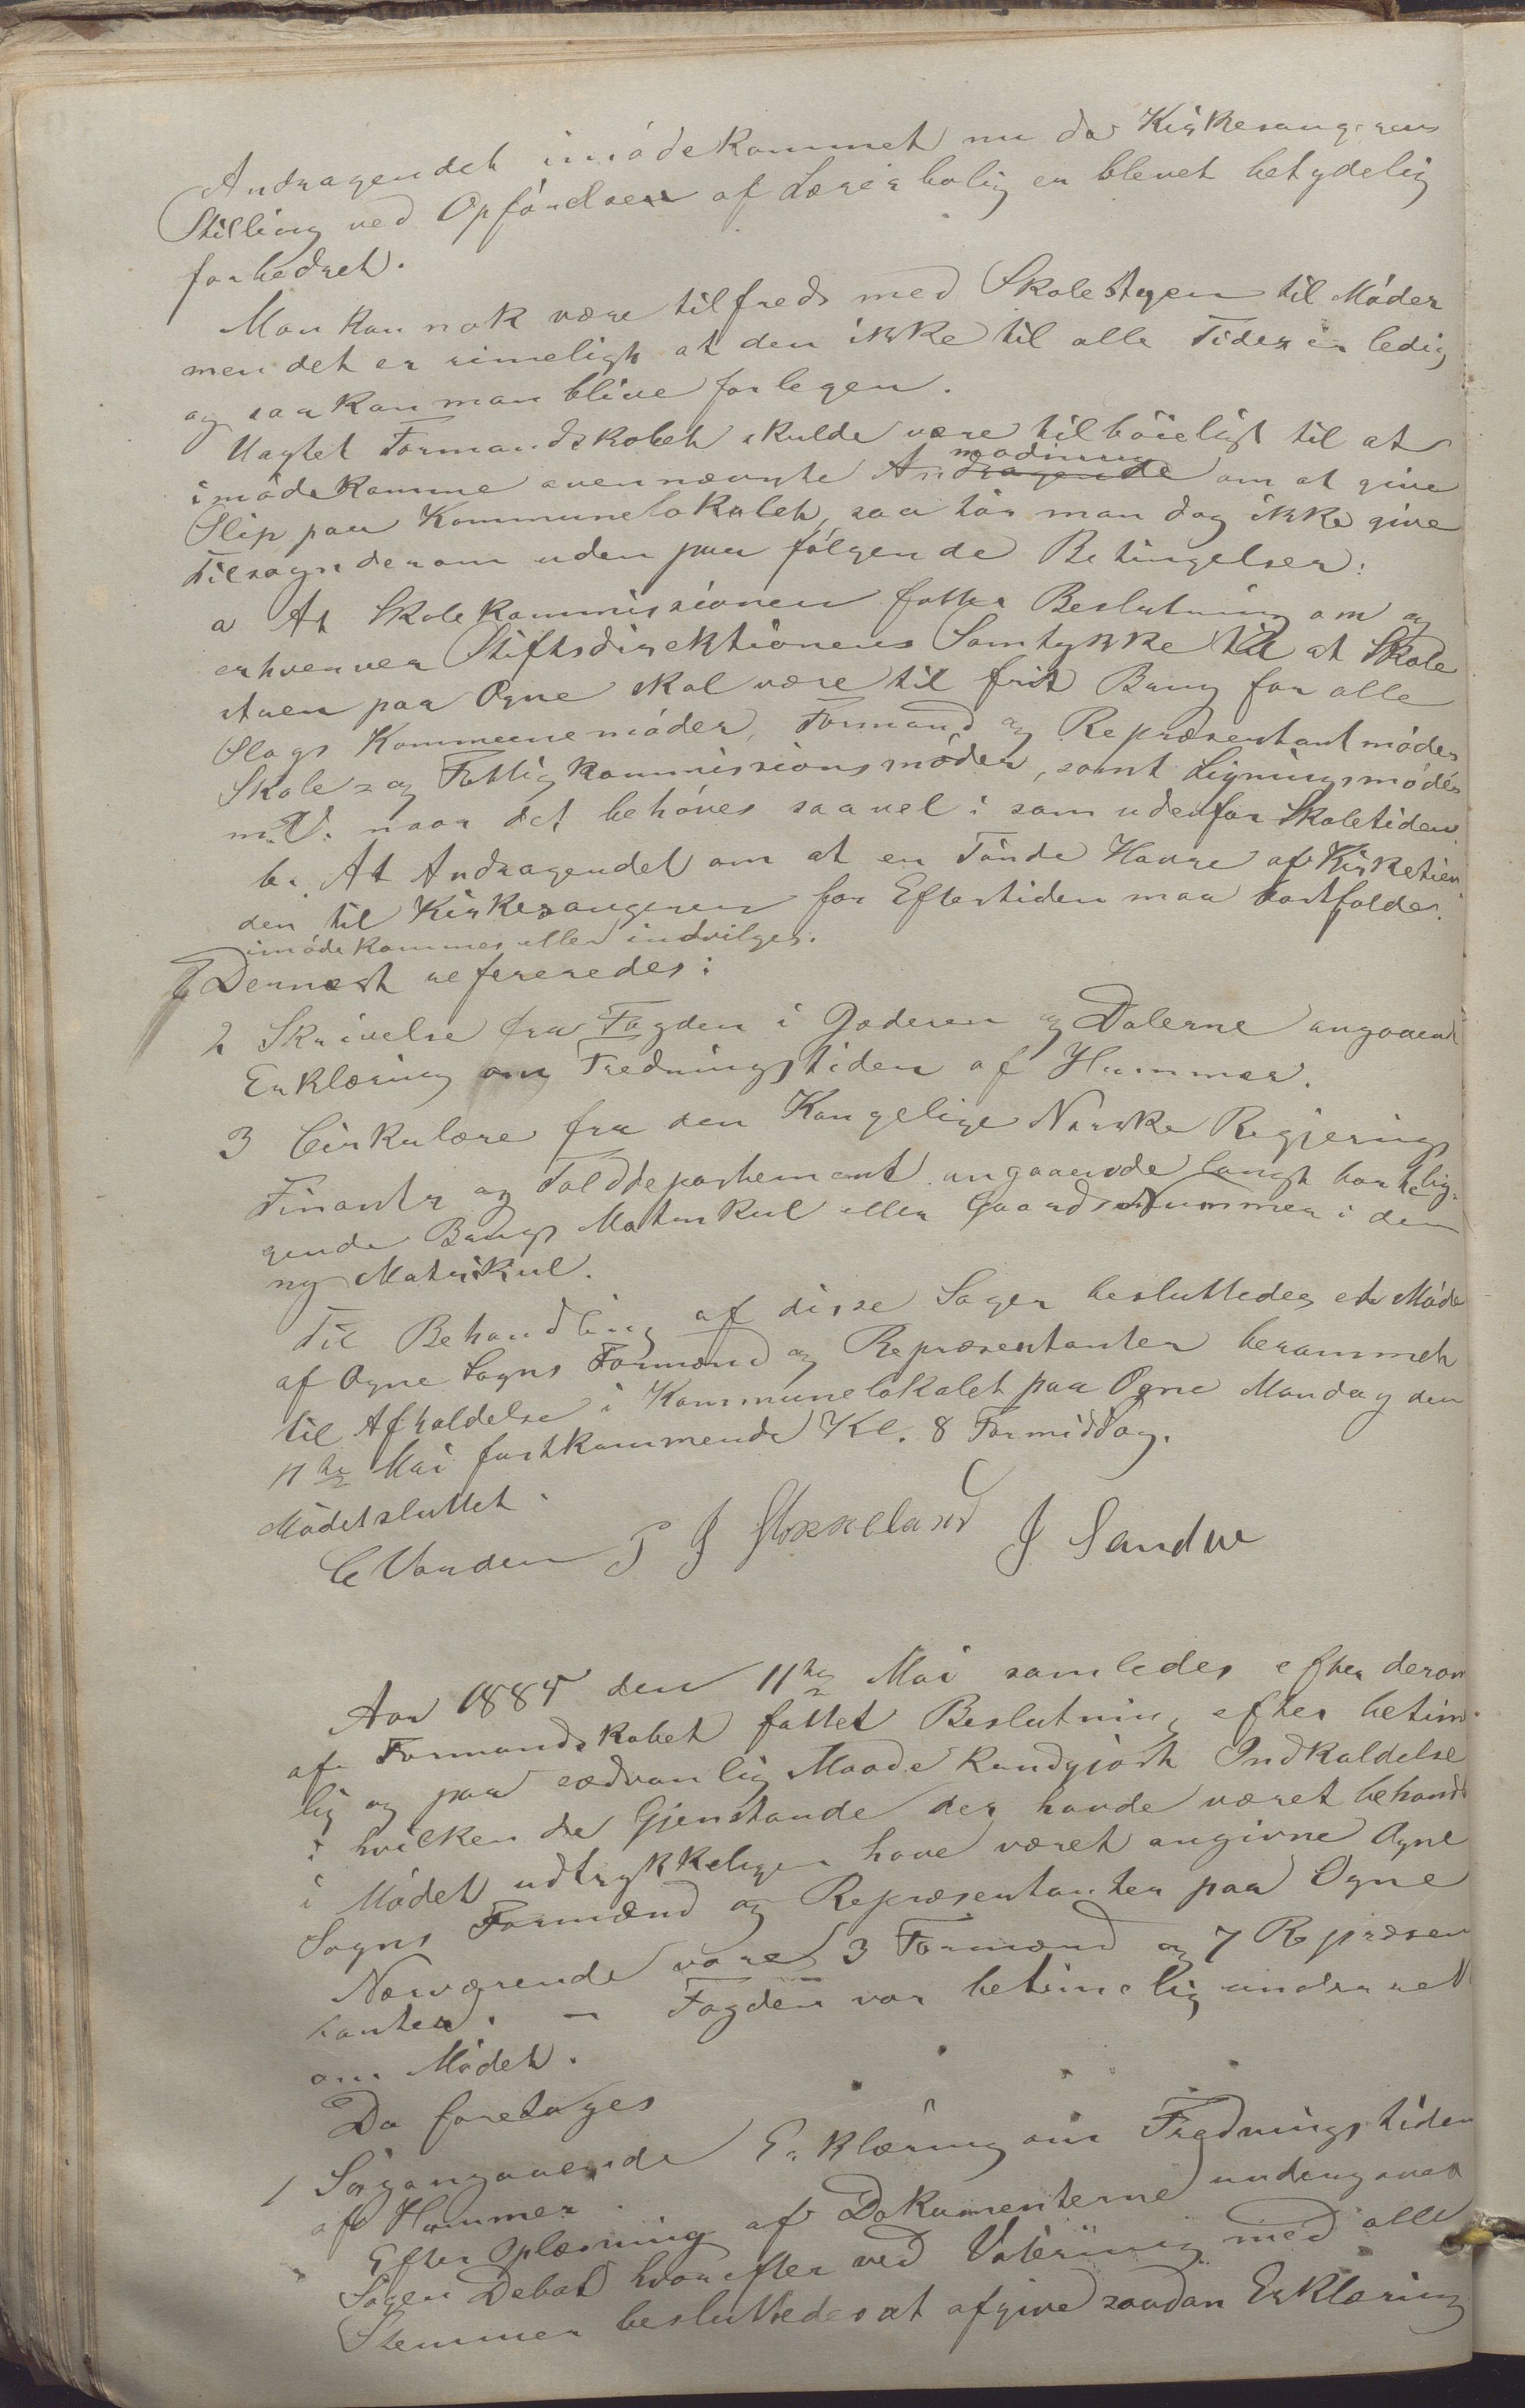 Andragendet imødekommet nu da Kirkesangerens
Stilling ved Opførelsen af Lærerbolig er blevet betydelig
forbedret.
Man kan nok være tilfreds med Skolestuen til Møder
men det er rimeligt at den ikke til alle Tider er ledig
og saa kan man blive forlegen.
Uagtet Formandskabet skulde være tilbøieligt til at
imødekomme ovennævnte Anmodning om at give
Slip paa Kommunelokalet, saa tør man dog ikke give
Tilsagn derom uden paa følgende Betingelser:
a At Skolekommissionen fatter Beslutning om og
erhverver Stiftsdirektionens Samtykke til at Skole
stuen paa Ogne skal være til frit Brug for alle
Slags Kommunemøder, Formand og Repræsentantmøder
Skole- og Fattigkommissionsmøder, samt Ligningsmøder
m.V. naar det behøves saavel i som udenfor Skoletiden.
b. At Andragendet om at en Tønde Havre af Kirketien
den til Kirkesangeren for Eftertiden maa bortfalde.
imødekommes eller indvilges.
Dernæst refereredes:
2 Skrivelse fra Fogden i Jæderen og Dalerne angaaende
Erklæring om Fredningstiden af Hummer.
3 Cirkulære fra den Kongelige Norske Regjerings
Finants og Tolddepartement angaaende langt bortlig-
gende Brugs Matrikul eller Gaardsnummer i den
ny Matrikul.
Til Behandling af disse Sager besluttedes et Møde
af Ogne Sogns Formænd og Repræsentanter berammet
til Afholdelse i Kommunelokalet paa Ogne Mandag den
11te Mai førstkommende Kl. 8 Formiddag.
Mødet sluttet.
C Vanden P J Stokkeland J Sandve
Aar 1885 den 11te Mai samledes efter derom
af Formandskabet fattet Beslutning efter betime
lig og paa sædvanlig Maade kundgjort Indkaldelse
i hvilken de Gjenstande der havde været behand
i Mødet udtrykkeligen have været angivne Ogne
Sogns Formænd og Repræsentanter paa Ogne
Nærværende vare 3 Formænd og 7 Repræsen
tanter. – Fogden var betimelig underret
om Mødet.
Da foretoges
1 Sag angaaende Erklæring om Fredningstiden
af Hummer.
Efter Oplæsning af Dokumenterne undergaves
Sagen Debat hvorefter ved Votering med alle
Stemmer besluttedes at afgive saadan Erklæring